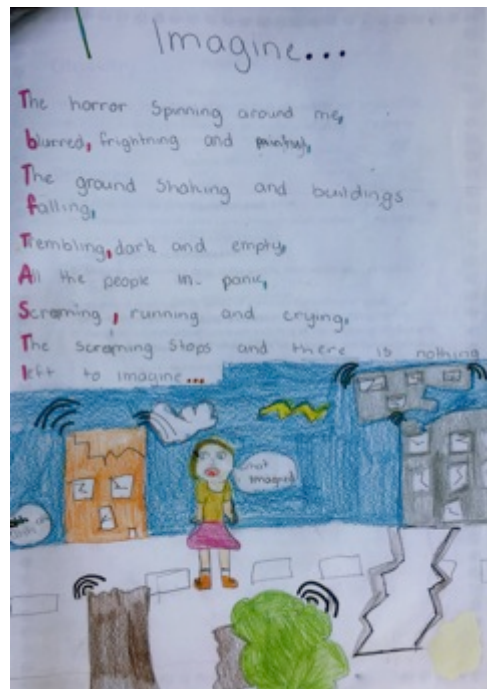 Imagine...
The horror spinning around me,
blurred, frightning and painful,
The ground shaking and buildings
falling,
Trembling, dark and empty,
All the people in panic,
Screaming, running and crying,
The screaming stops and there is nothing
left to imagine...
imagined